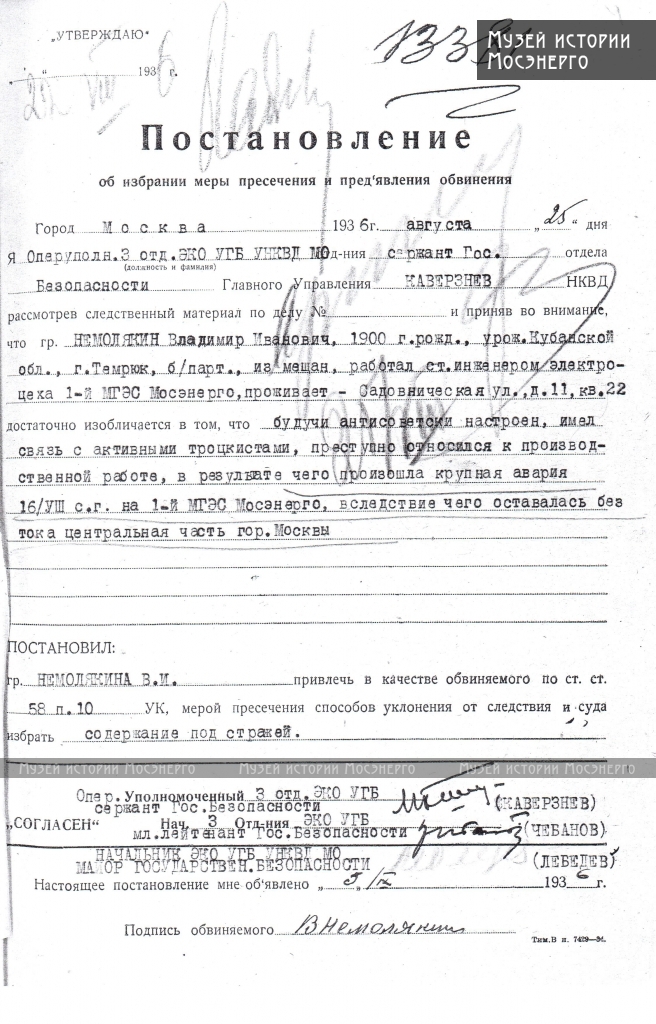 „УТВЕРЖДАЮ"
МУЗЕЙ ИСТОРИИ
МОСЭНЕРГО
„22" VIII 1936 г.
Постановление
об избрании меры пресечения и пред'явления обвинения
Город Москва 1936 г. августа „25" дня
Я Оперуполн.3 отд.ЭКО УГБ УНКВД МО Отд-ния сержант Гос. отдела
(должность и фамилия)
Безопасности Главного Управления КАВЕРЗНЕВ НКВД
рассмотрев следственный материал по делу № и приняв во внимание,
что гр. НЕМОЛЯКИН Владимир Иванович, 1900 г.рожд., урож.Кубанской
обл., г.Темрюк, б/парт., из мещан, работал ст.инженером электро-
цеха 1-й МГЭС Мосэнерго,проживает - Садовническая ул.,д.11,кв.22
достаточно изобличается в том, что будучи антисоветски настроен, имел
связь с активными троцкистами, преступно относился к производ-
ственной работе, в результате чего произошла крупная авария
16/УШ с.г. на 1-й МГЭС Мосэнерго, вследствие чего оставалась без
тока центральная часть гор.Москвы
ПОСТАНОВИЛ:
гр. НЕМОЛЯКИНА В.И. привлечь в качестве обвиняемого по ст. ст.
58 п.10 УК, мерой пресечения способов уклонения от следствия и суда
избрать содержание под стражей.
МУЗЕЙ ИСТОРИИ МОСЭНЕРГО МУЗЕЙ ИСТОРИИ МОСЭНЕРГО МУЗЕЙ ИСТОРИИ МОСЭНЕРГО
Опер.Уполномоченный 3 отд.ЭКО УГБ
сержант Гос.Безопасности (КАВЕРЗНЕВ)
„СОГЛАСЕН" Нач. 3 Отд-ния ЭКО УГБ
мл.лейтенант Гос.Безопасности (ЧЕБАНОВ)
НАЧАЛЬНИК ЭКО УГБ УНКВД МО
МАЙОР ГОСУДАРСТВЕН.БЕЗОПАСНОСТИ (ЛЕБЕДЕВ)
Настоящее постановление мне об'явлено „5" IX 1936 г.
Подпись обвиняемого ВНемолякин
Тим.В п. 7429—34.